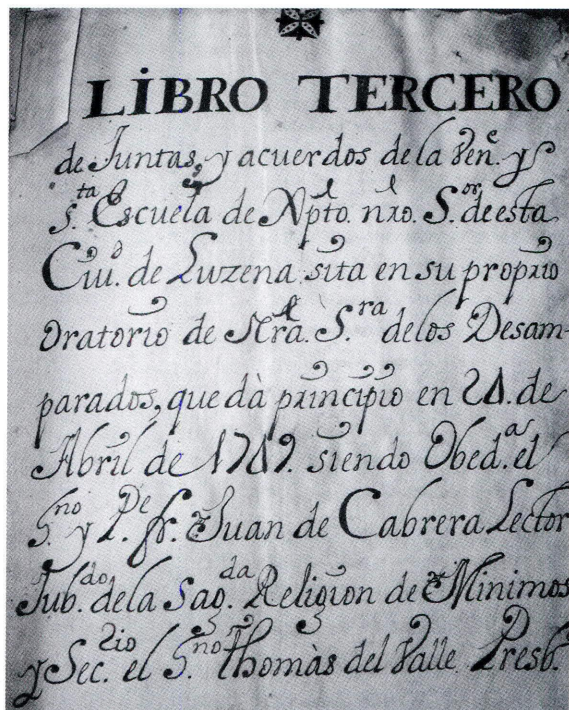 LIBRO TERCERO
de Juntas, y acuerdos de la Ven.e y
S.ta Escuela de Xpto. nro. S.or de esta
Ciu.d de Luzena sita en su proprio
Oratorio de Nra. S.ra de los Desam-
parados, que dà principio en 20. de
Abril de 1749. siendo Obed.a el
h.no y P.e fr. Juan de Cabrera Lector
Jub.do de la Sag.da Religion de Minimos
y Sec.rio el h.no Thomàs del Valle Presb.